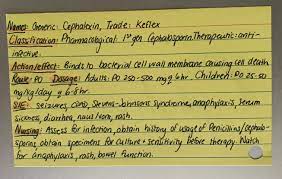 Name: Generic: Cephalexin, Trade: Keflex
Classification: Pharmacological: 1st gen Cephalosporin Therapeutic: anti-
infective
Action/effect: Binds to bacterial cell wall membrane causing cell death
Route: PO Dosage: Adults: PO 250-500 mg q 6hr. Children: PO 25-50
mg/kg/day q 6-8hr.
S/E: seizures, Stevens-Johnsons syndrome, anaphylaxis, serum
sickness, diarrhea, naus/vom, rash.
Nursing: Assess for infection, obtain history of usage of Penicillins/cephalo-
sporins, obtain specimens for culture + sensitivity before therapy. Watch
for anaphylaxis, rash, bowel function.